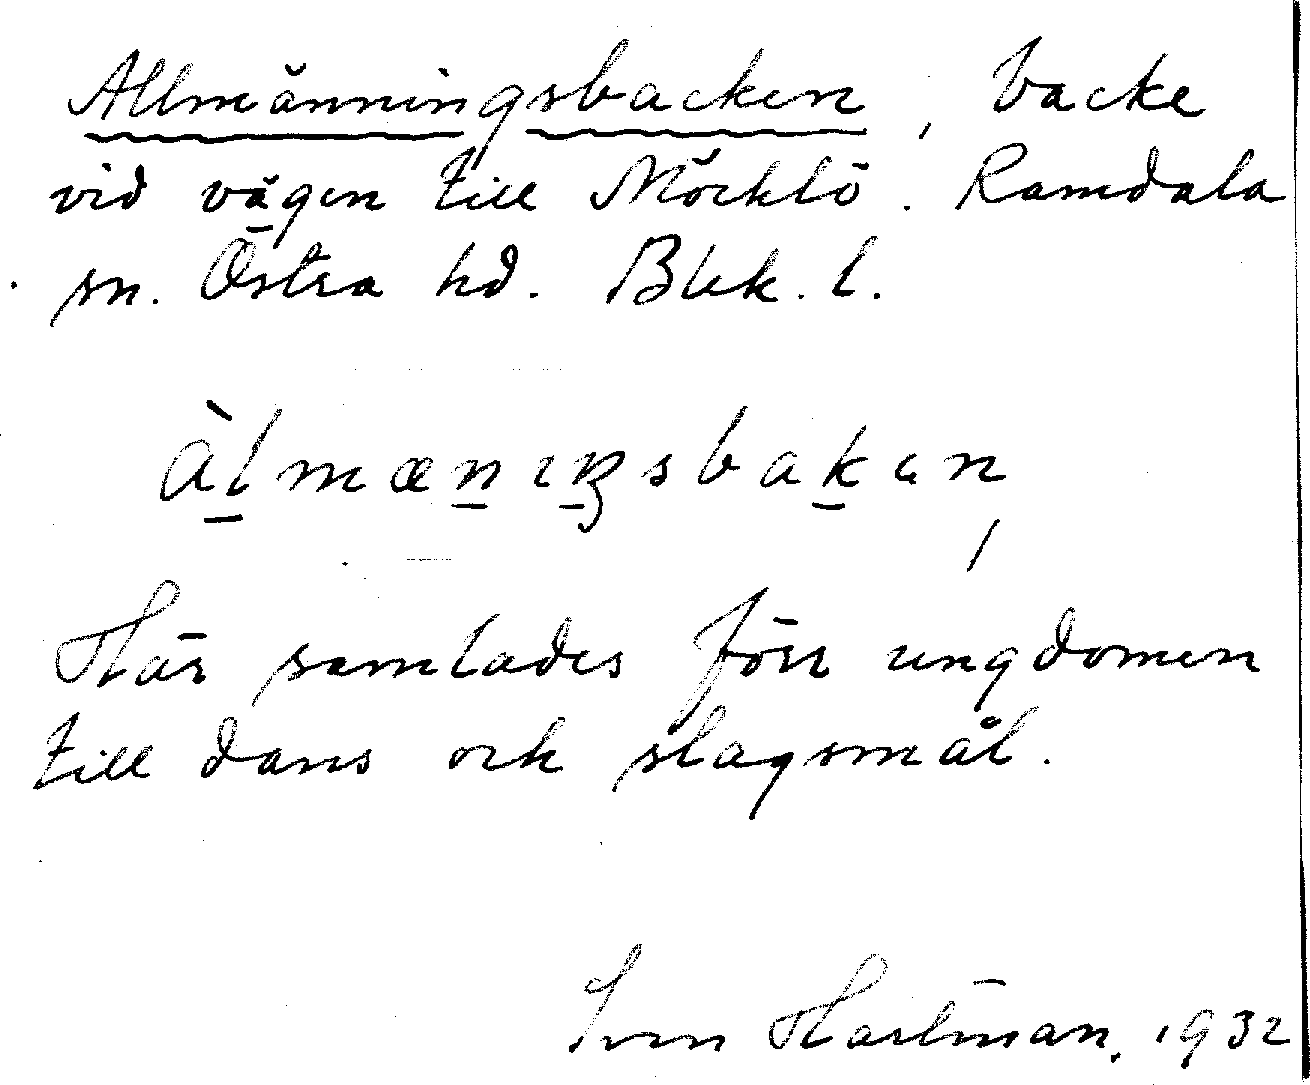 Allmänningsbacken, backe
vid vägen till Möcklö. Ramdala
sn. Östra hd. Blek. l.
àl̠mæn̠ıŋ̠sbak̠ɛn
Här samlades förr ungdomen
till dans och slagsmål.
Sven Hartman, 1932